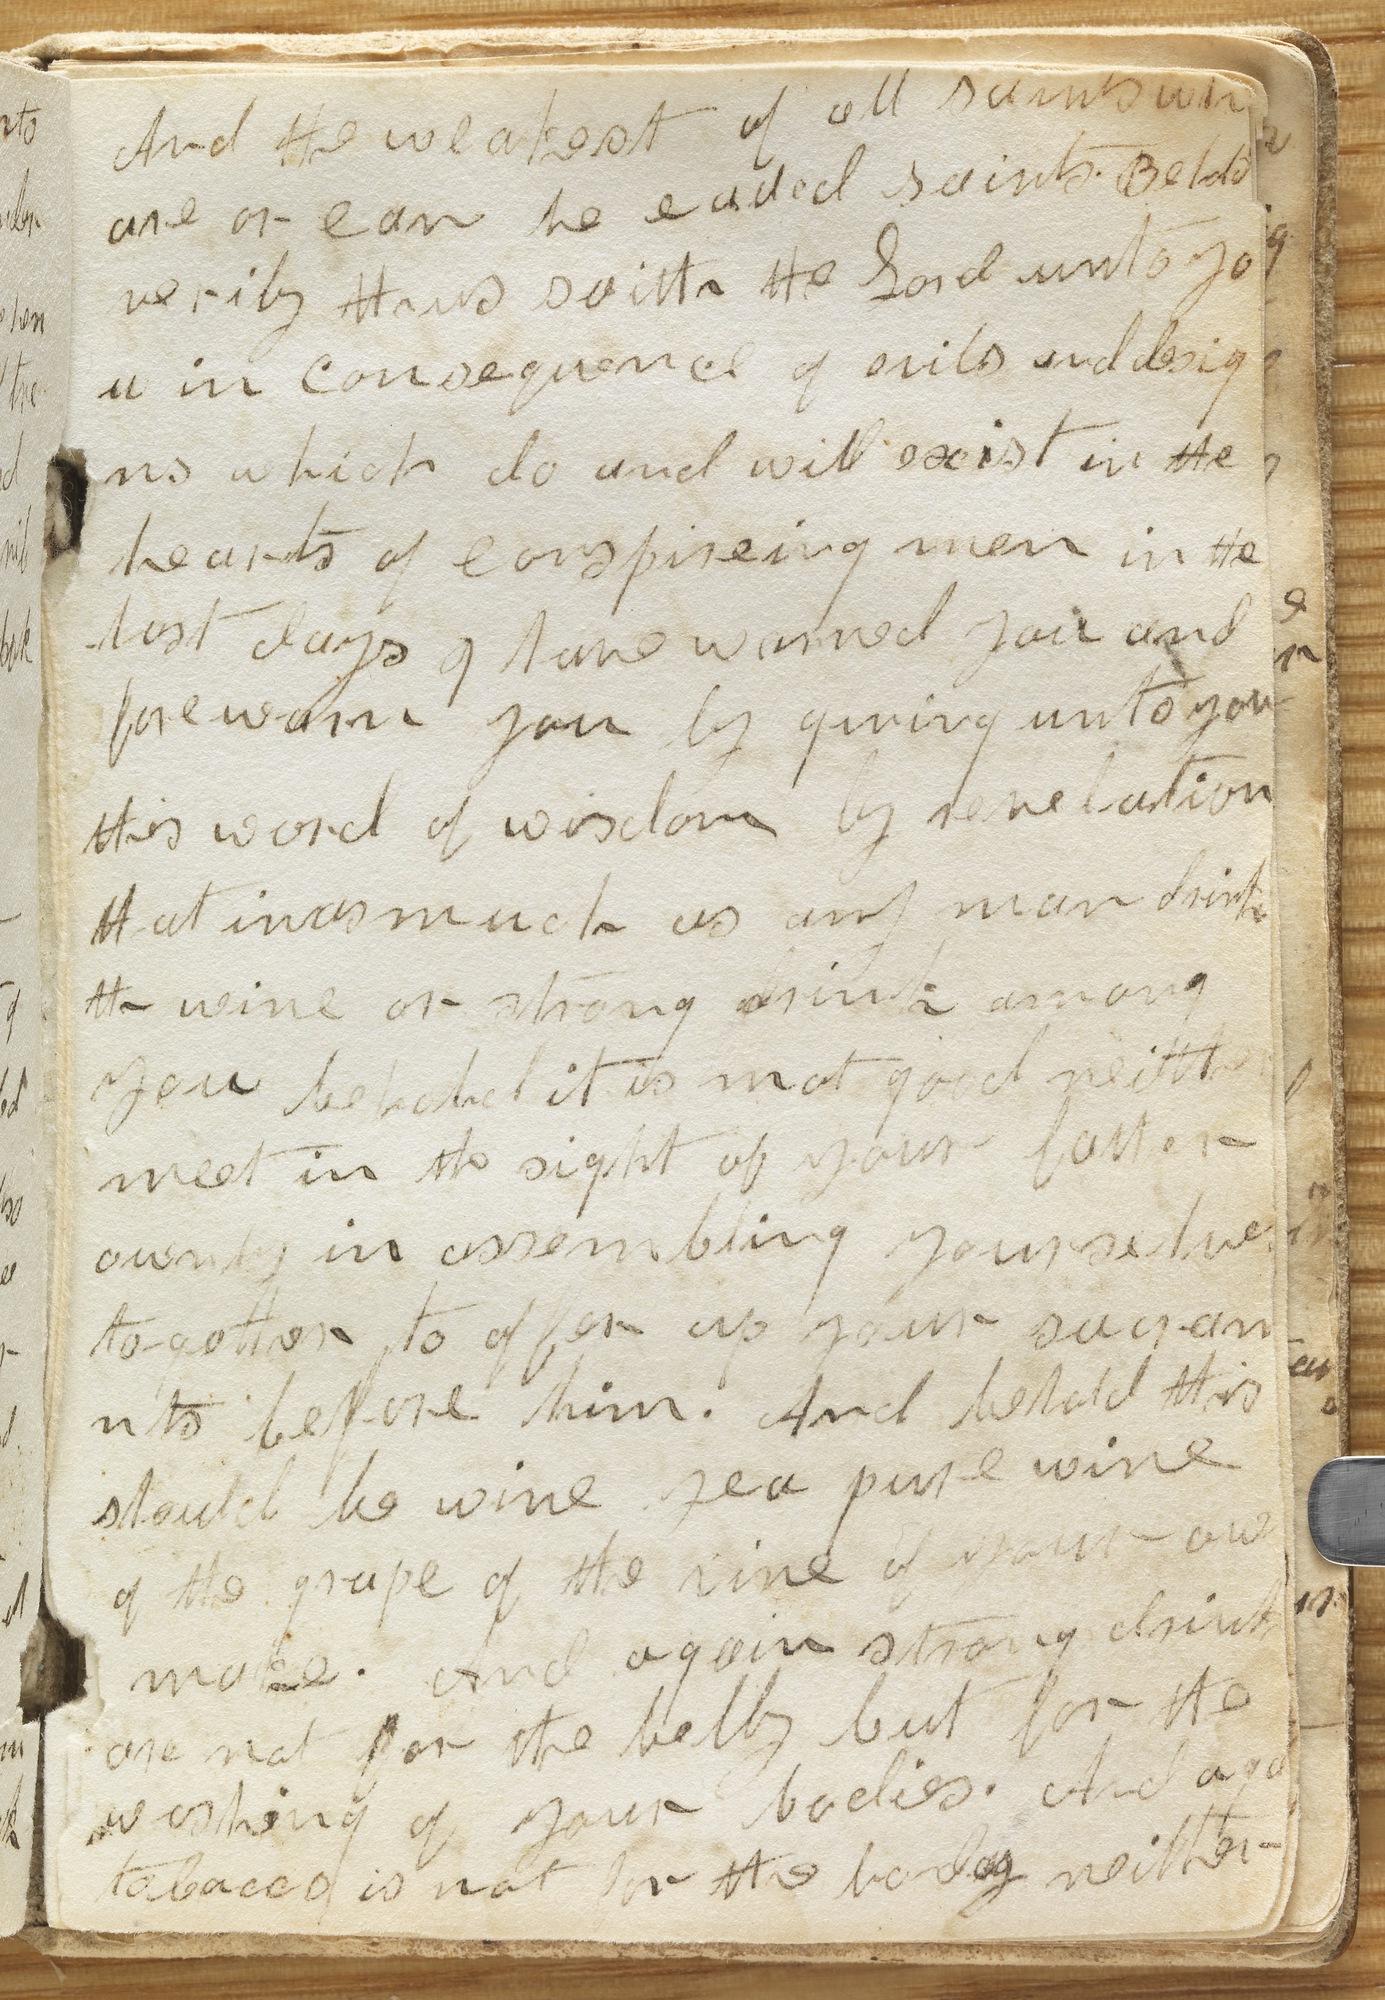 And the weakest of all saints who
are or can be called saints. Behold
verily thus saith the Lord unto yo
u in consequence of evils and desig
ns which do and will exist in the
hearts of conspireing men in the
last days I have warned you and
forewarn you by giving unto you
this word of wisdom by revelation
that inasmuch as any man drink
th wine or strong drink among
you behold it is not good neither
meet in the sight of your father
ownly in assembling yourselves
together to offer up your sacram
nts before him. And behold this
should be wine yea pure wine
of the grape of the vine of your ow
make. And again strong drink
are not for the belly but for the
washing of your bodies. And aga
tobacco is not for the body neither